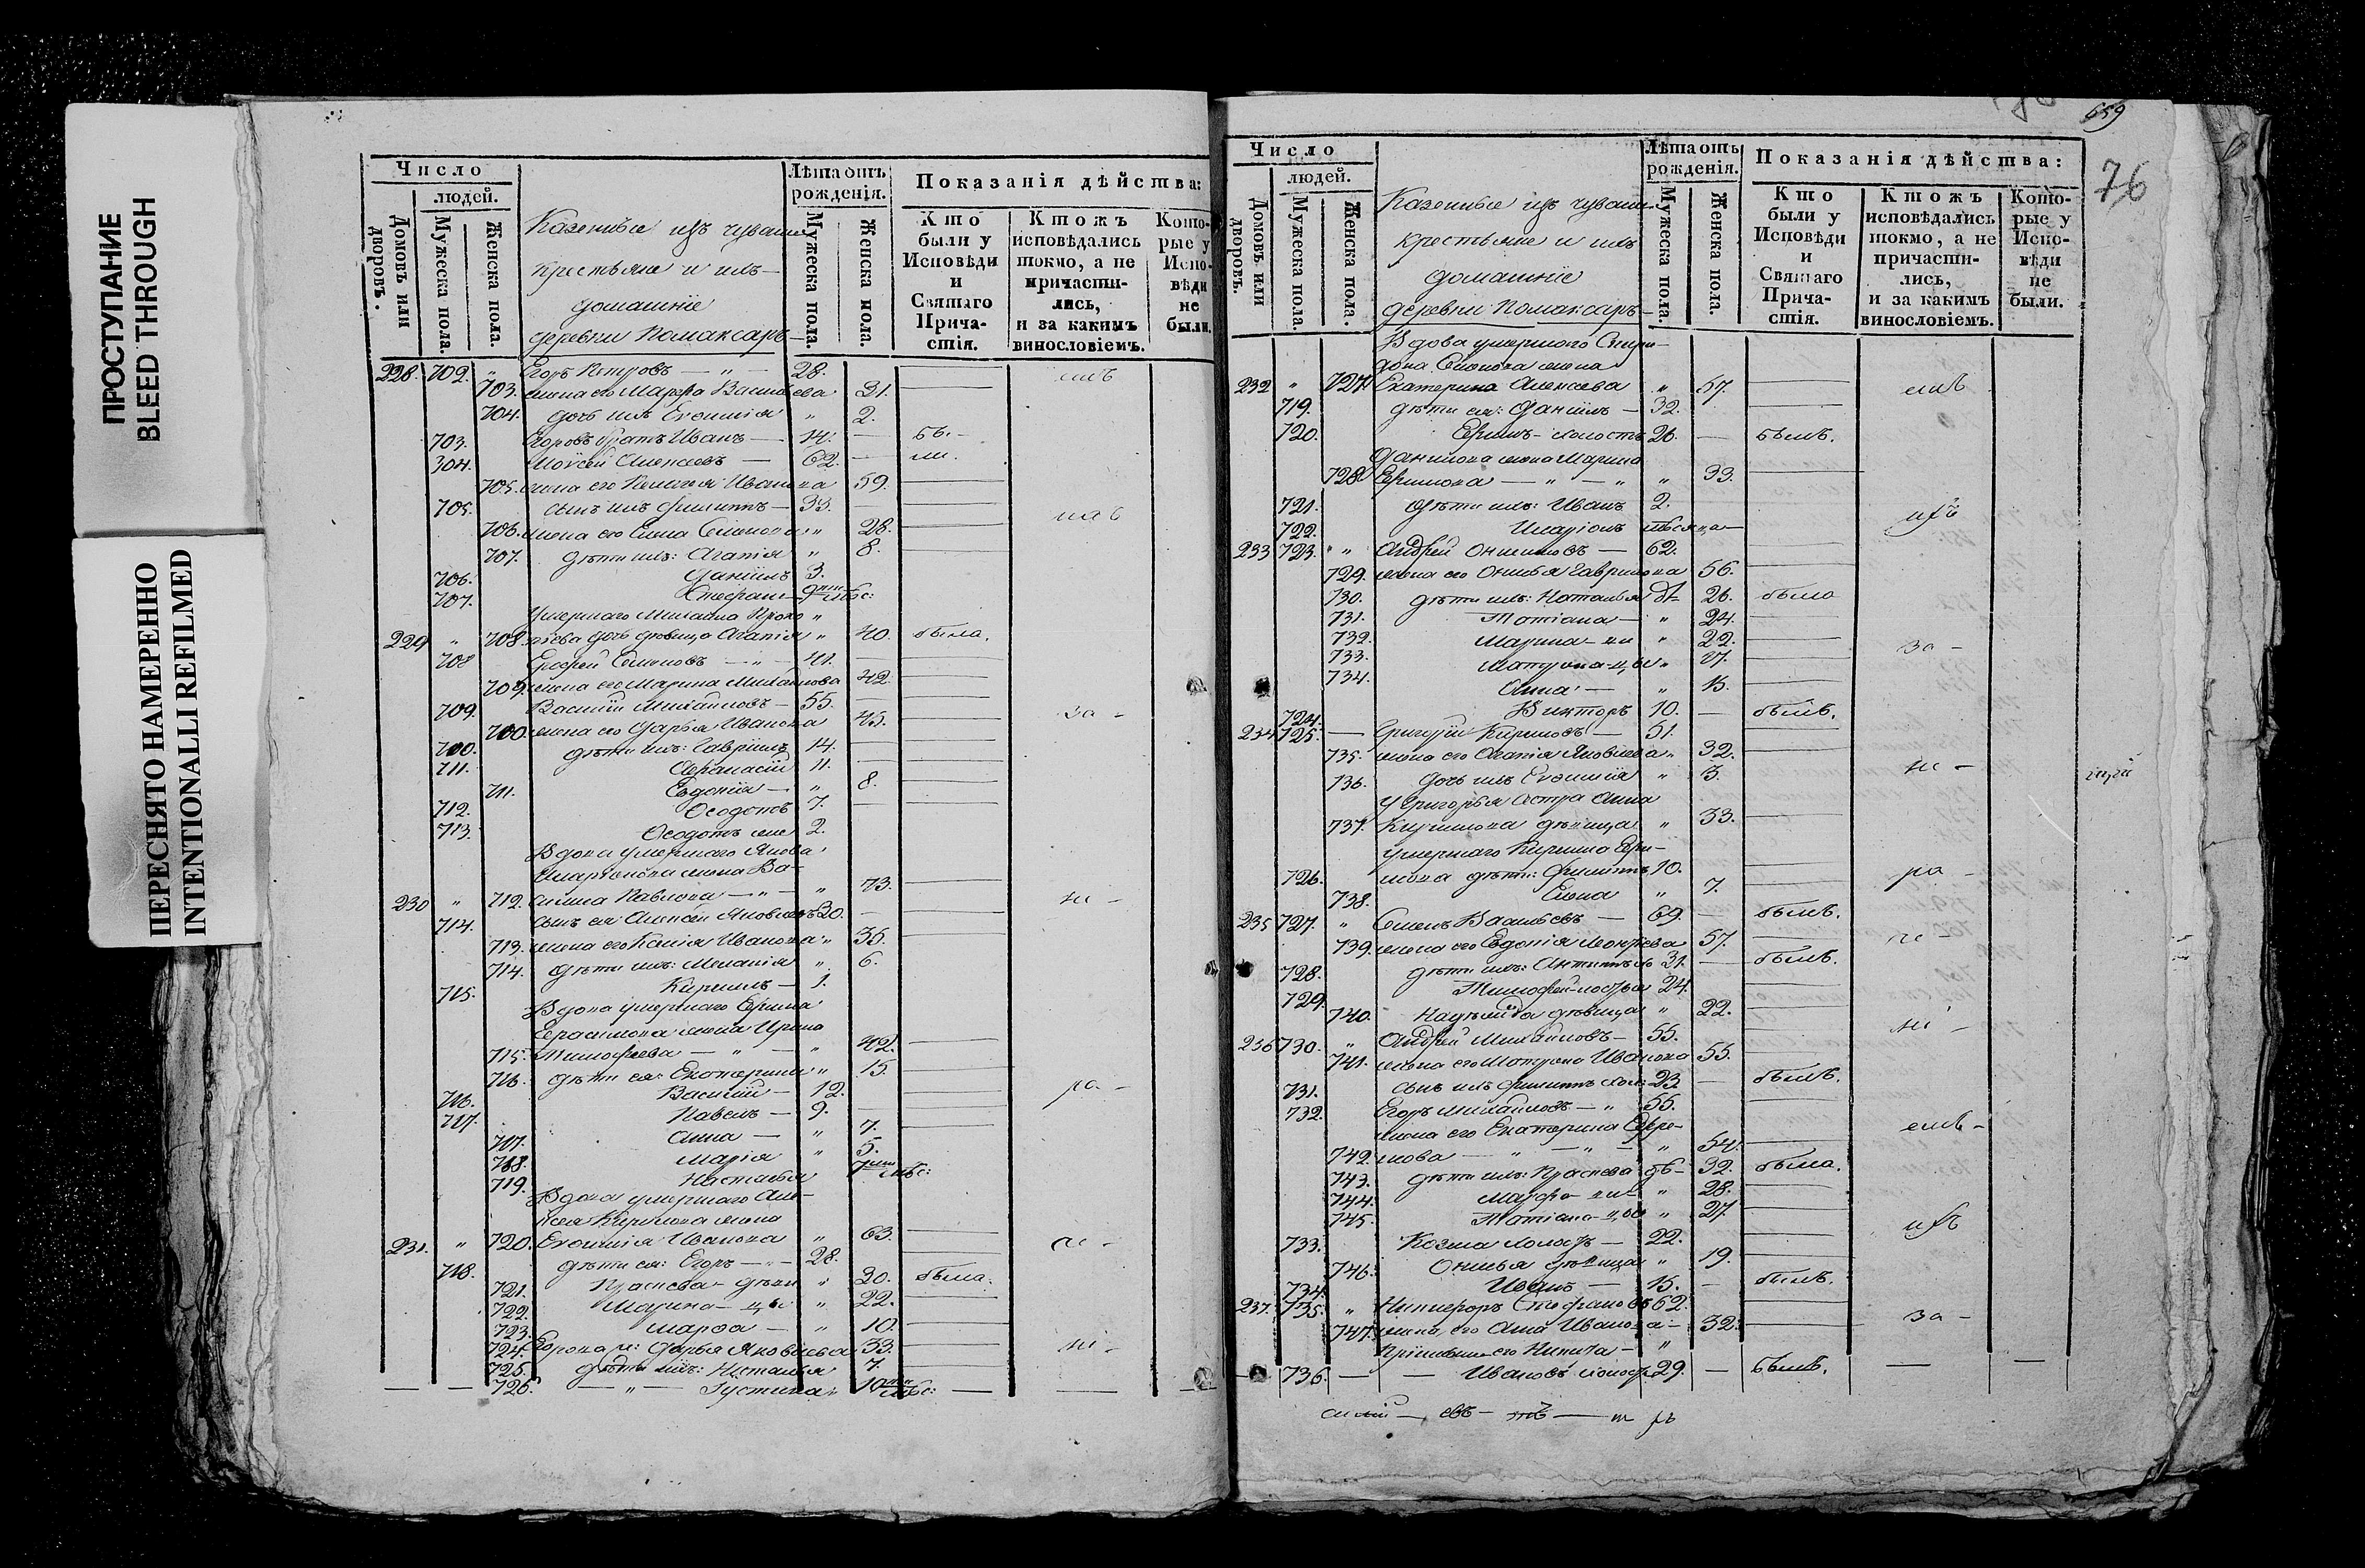 ПРОСТУПАНИЕ
BLEED THROUGH
ПЕРЕСНЯТО НАМЕРЕННО
INTENTIONALLI REFILMED
Число
людей.
Домовъ или дворовъ.
Мужеска пола.
Женска пола.
Казенные изъ чувашъ
крестьяне и ихъ
домашніе
деревни
Лѣта отъ рожденія.
Мужеска пола.
Женска пола.
Показанія дѣйства:
Кто были у Исповѣди и Святаго Причастія.
Ктожъ исповѣдались токмо, а не причастились, и за какимъ винословіемъ.
Которые у Исповѣди не были.
228. 702. " Егоръ Петровъ — " — 28.
703. жена его Марфа Васильева 31.
704. дочь ихъ Евѳимія " 2.
703. Егоровъ братъ Иванъ — 14.
304. Моѵсей Алексеевъ — 62.
705. жена его Пелагея Иванова 59.
705. сынъ ихъ Филиппъ — 33.
706. жена его Елена Семенова " 28.
707. дѣти ихъ: Агапія " 8.
706. Даніилъ 3.
707. Стефанъ 9 мѣс:
Умершаго Михайла Проко
229 " 708. піева дочь дѣвица Агапія " 40. была.
708 Ерофей Семеновъ — " — 41.
709. жена его Марина Михайлова 42.
709. Василій Михайловъ — 55.
700. жена его Дарья Иванова 45.
700. дѣти ихъ: Гавріилъ 14.
711. Афанасій 11.
711. Евдокія — " 8.
712. Ѳеодотъ 7.
713. Ѳеодотъ 2.
Вдова умершаго Якова
жена Ва-
230 " 712. силиса Павлова — " — " 73.
714. сынъ ея Алексѣй Яковлевъ 30.
713. жена его Ксенія Иванова " 35.
714. дѣти ихъ: Меланія " 6.
715. Кирилъ — 1.
Вдова умершаго Ефима
Герасимова жена Ирина
715. Тимофеева — " — " 42.
716. дѣти ея: Екатерина " 15.
716. Василій — 12.
717. Павелъ — 9.
717. Анна — " 7.
718. Марія " 5.
719. Настасья 7 мѣс:
Вдова умершаго Але-
ксея Кирилова жена
231. " 720. Евѳимія Иванова " 63.
718. дѣти ея: Егоръ — " — 28.
721. дѣви " 30. была.
722. Марина — цы " 22.
723. Марѳа — " 10.
724. Егорова ж: Дарья Яковлева 33.
725. дѣти ихъ: Наталья 7.
726. — " — Іустина " 10 мѣс:
659
76
Число
людей.
Домовъ или дворовъ.
Мужеска пола.
Женска пола.
Казенные изъ чувашъ
крестьяне и ихъ
домашніе
деревни
Лѣта отъ рожденія.
Мужеска пола.
Женска пола.
Показанія дѣйства:
Кто были у Исповѣди и Святаго Причастія.
Ктожъ исповѣдались токмо, а не причастились, и за какимъ винословіемъ.
Которые у Исповѣди не были.
Вдова умершаго Спири-
дона Семенова жена
232 " 727. Екатерина Алексеева " 57.
719. дѣти ея: Даніилъ — 32.
720. Ефимъ — холостъ 26. — былъ.
Данилова жена Марина
728. Ефимова — " — " " 33.
721. дѣти ихъ: Иванъ 2.
722. Иларіонъ мѣсяца
233 723. " Андрей Онисимовъ — 62.
729. жена его Онисья Гаврилова 56.
730. дѣти ихъ: Наталья дѣ 26. была
731. Татіана — " 24.
732. Марина — ви " 22.
733. Матрона — цы " 17.
734. Анна — " 15.
724. Викторъ 10. — былъ.
234 725. — Григорій Кириловъ — 51.
735. жена его Агапія Яковлева " 32.
736. дочь ихъ Евѳимія " 3.
У Григорья сестра Анна
737. Кирилова дѣвица " 33.
умершаго Кирила Ефи-
726. мова дѣти: Филиппъ 10.
738. Елена " 7.
235 727. " Семенъ Васильевъ — 69. — былъ.
739. жена его Евдокія 57.
728. дѣти ихъ: Антипъ 31. — былъ.
729. Тимофей 24.
740. Надежда дѣвица " 22.
236 730. " Андрей Михайловъ — 55.
741. жена его Матрона Иванова 55.
731. сынъ ихъ Филиппъ хол: 23 — былъ.
732. Егоръ Михайловъ — " 55.
жена его Екатерина Ефре-
742. мова — " — " — " 54.
743. дѣти ихъ: дѣ — 32. была.
744. Марфа — ви — " 28.
745. Татіана — цы " 27.
733. Козма холостъ — 22.
746. Онисья дѣвица " 19.
734. Иванъ — 15. — былъ.
237. 735. " Никифоръ Стефановъ 62.
747. жена его Анна Иванова — 32.
его Никита — "
736. — — Ивановъ холостъ 29. — былъ.